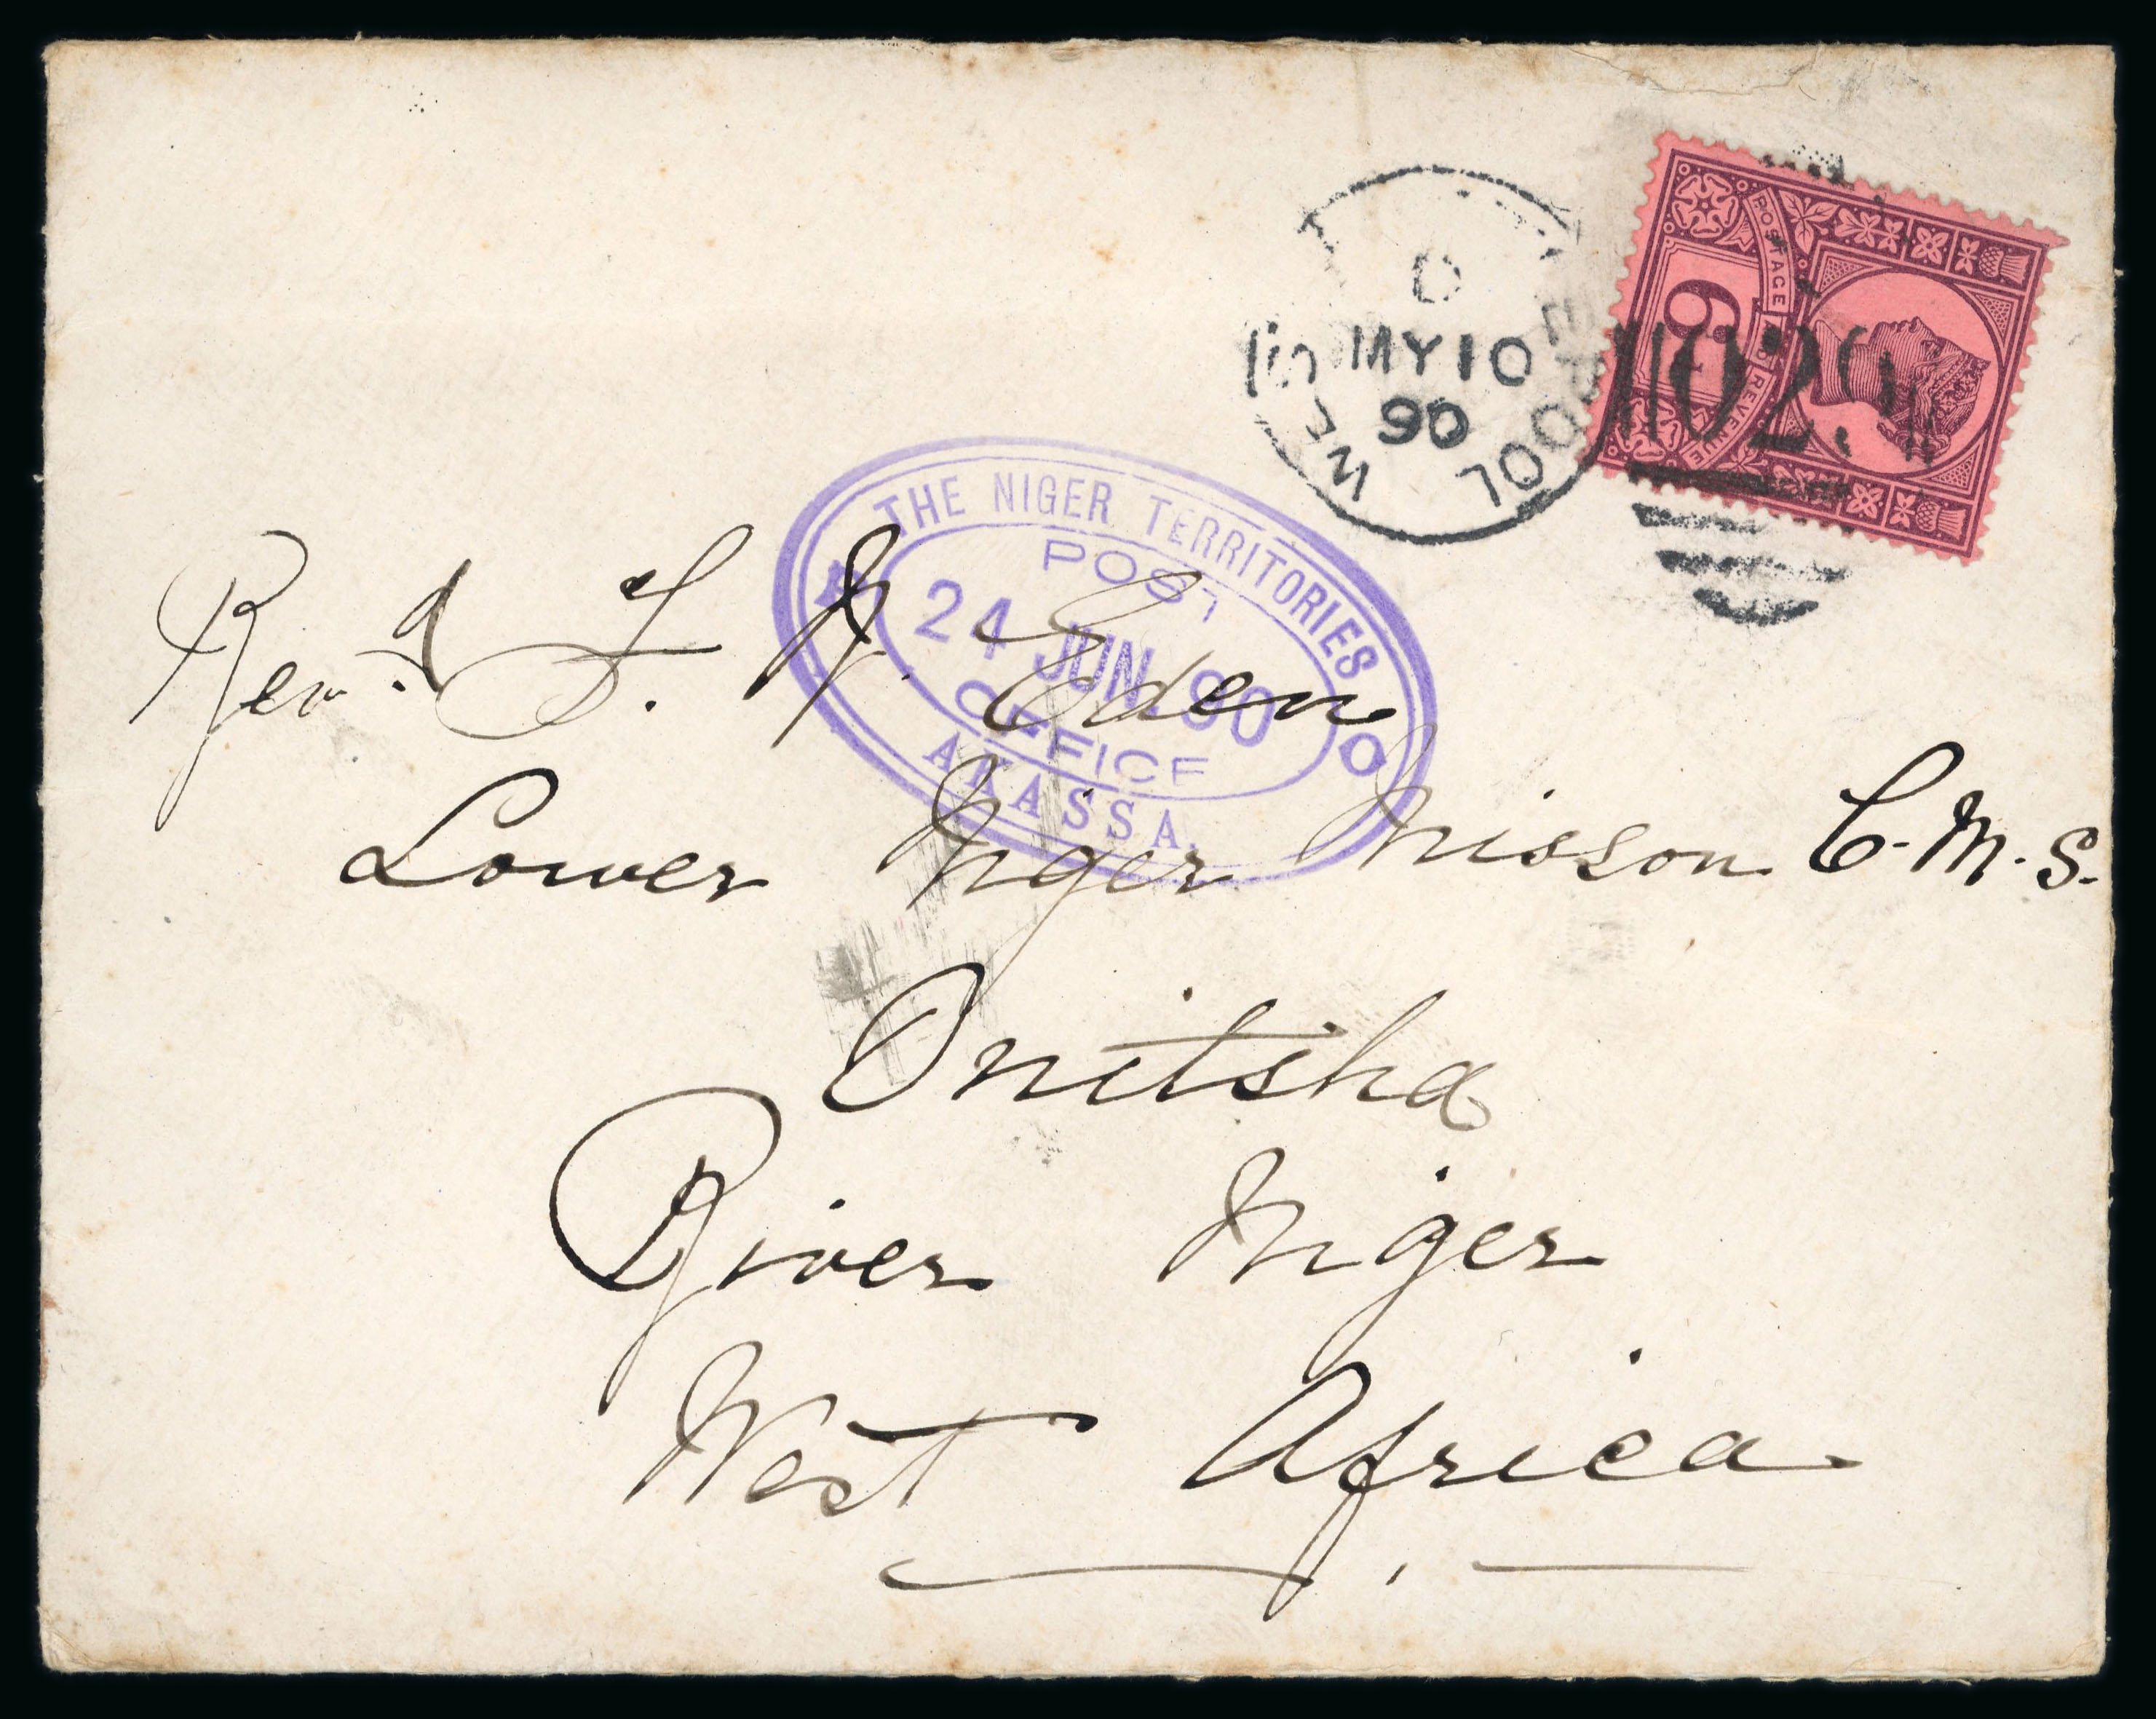 POSTAGE & REVENUE
6D
D
MY 10
90
WEST
ERPOOL
029
THE NIGER TERRITORIES
POST
24 JUN. 90
OFFICE
AKASSA.
Revd. F. N. Eden
Lower Niger Misson C.M.S.
Onitsha
River Niger
West Africa